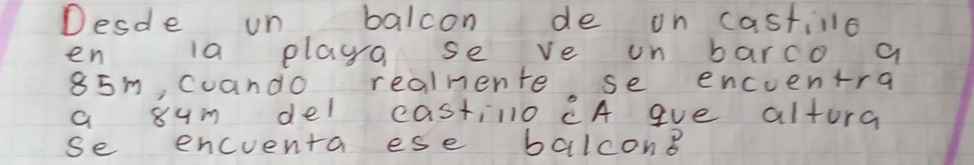 Desde un balcon de un castillo
en la playa se ve un barco a
85m, cuando realmente se encuentra
a 84m del castillo ¿A que altura
se encuenta ese balcon?